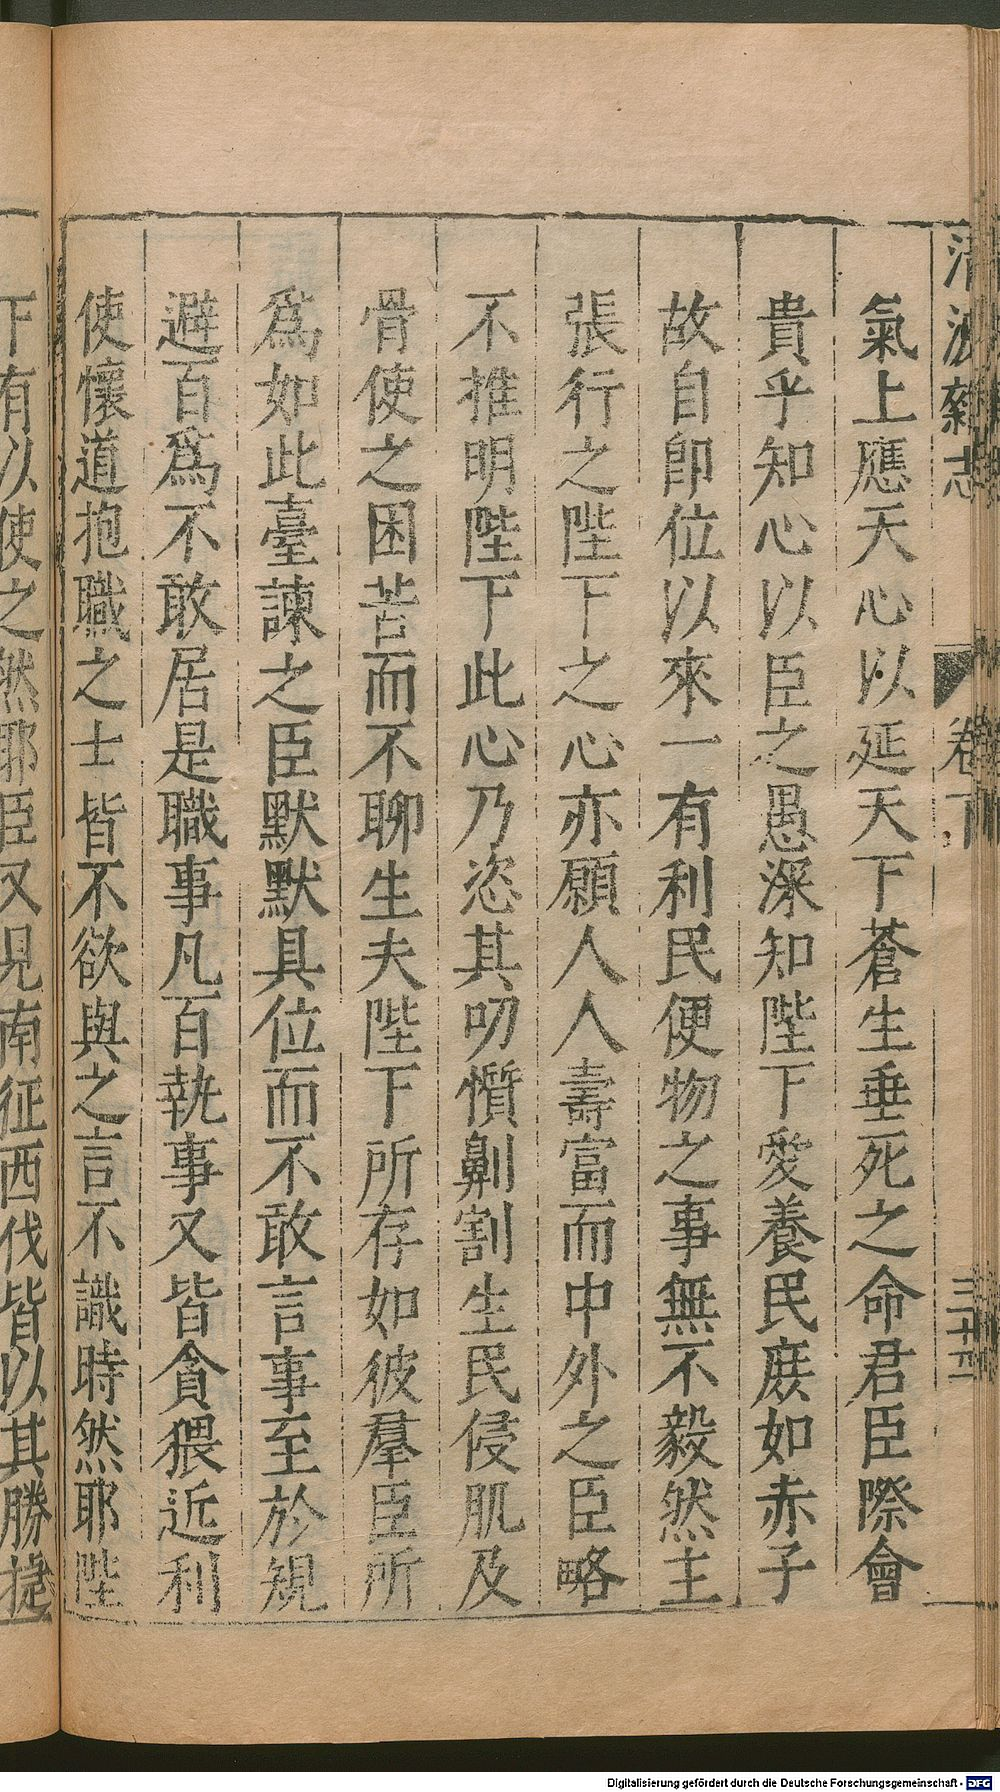 清波雜志 卷下 三十四
氣上應天心以延天下蒼生垂死之命君臣際會
貴乎知心以臣之愚深知陛下愛養民庶如赤子
故自卽位以來一有利民便物之事無不毅然主
張行之陛下之心亦願人人壽富而中外之臣略
不推明陛下此心乃恣其叨懫劓割生民侵肌及
骨使之困苦而不聊生夫陛下所存如彼羣臣所
爲如此臺諫之臣默默具位而不敢言事至於規
避百爲不敢居是職事凡百執事又皆貪猥近利
使懷道抱職之士皆不欲與之言不識時然耶陛
下有以使之然耶臣又見南征西伐皆以其勝捷
Digitalisierung gefördert durch die Deutsche Forschungsgemeinschaft - DFG